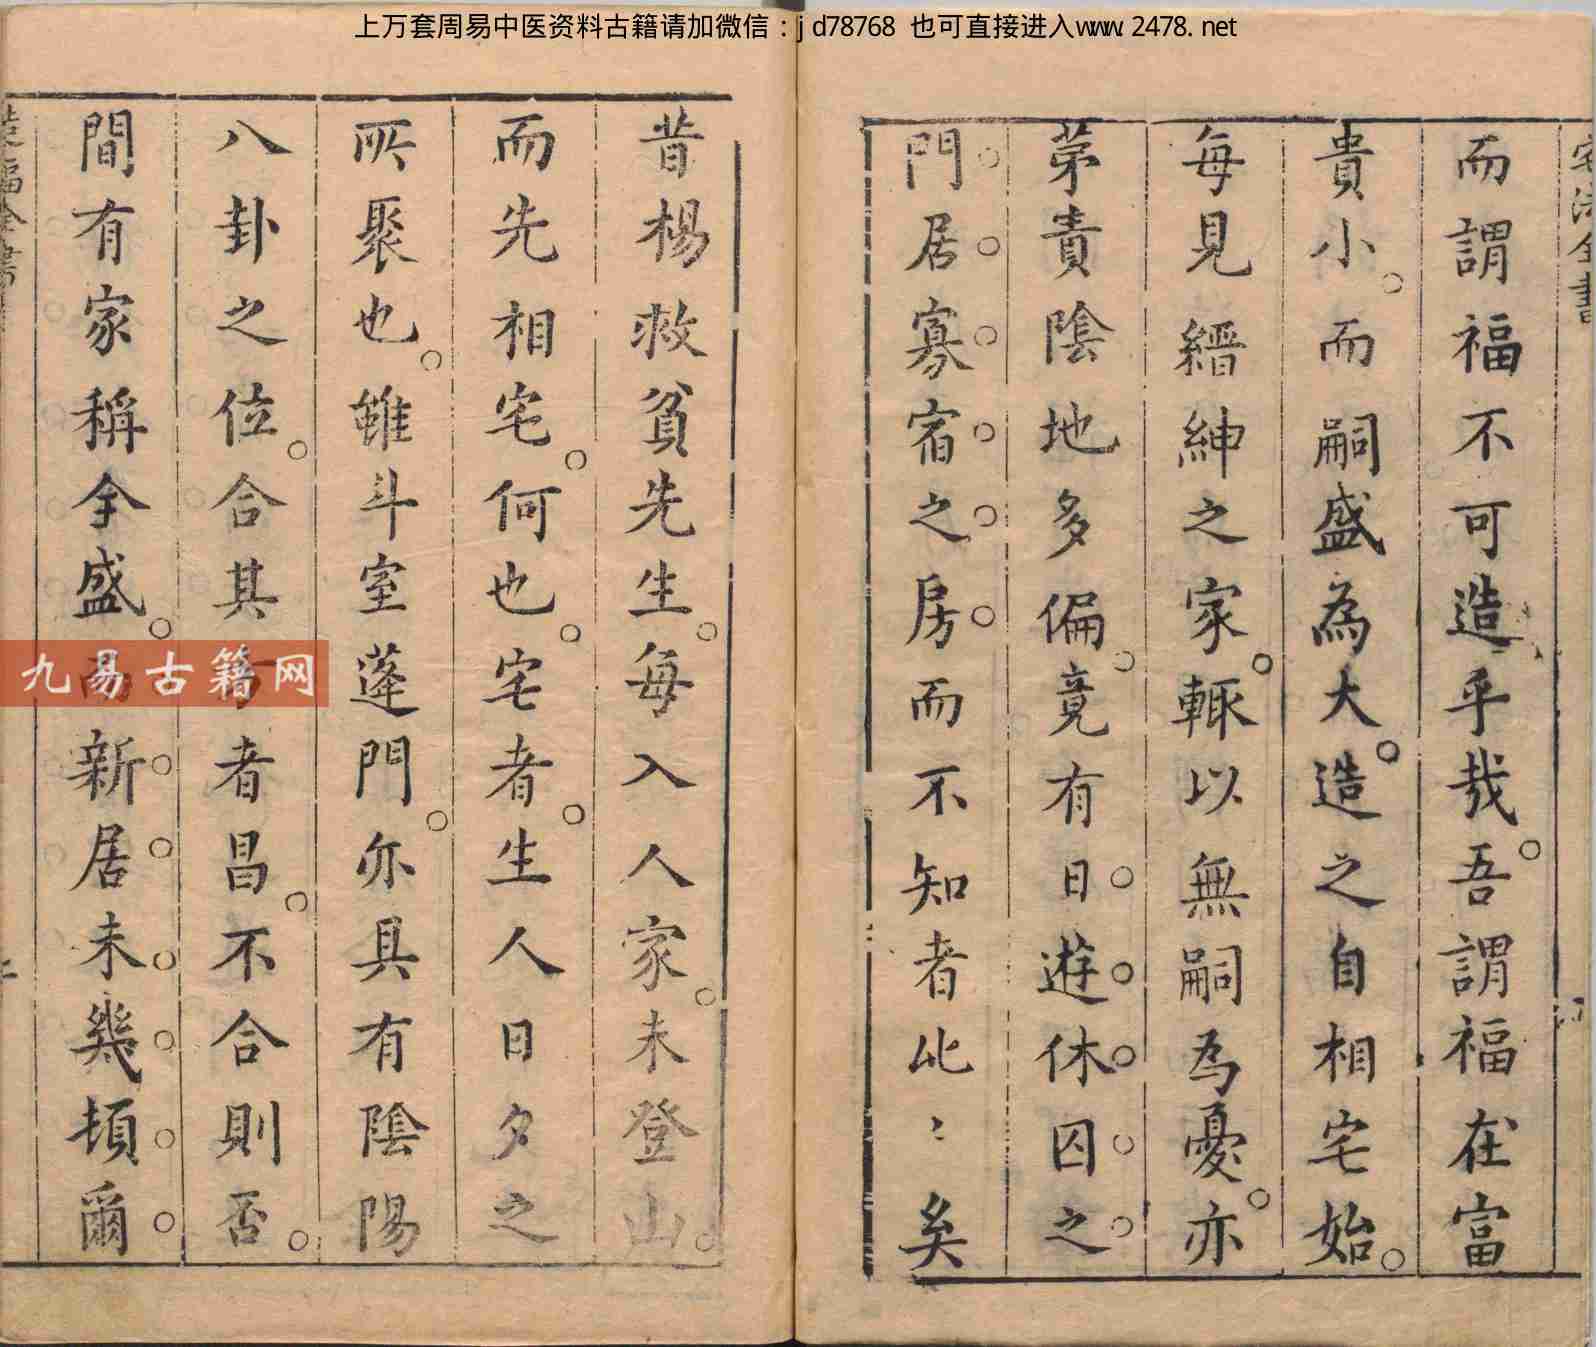 上万套周易中医资料古籍请加微信：jd78768 也可直接进入www.2478.net
宅法全書
而謂福不可造乎哉。吾謂福在富
貴小。而嗣盛為大。造之自相宅始。
每見縉紳之家。輙以無嗣為憂。亦
苐責陰地多偏。竟有日遊休囚之
門居寡宿之房而不知者比〻矣
昔楊救貧先生。每入人家。未登山。
而先相宅。何也。宅者。生人日夕之
所聚也。雖斗室蓬門。亦具有陰陽
八卦之位。合其者昌。不合則否。
間有家稱全盛。而新居未幾頓爾
福全書
九易古籍网